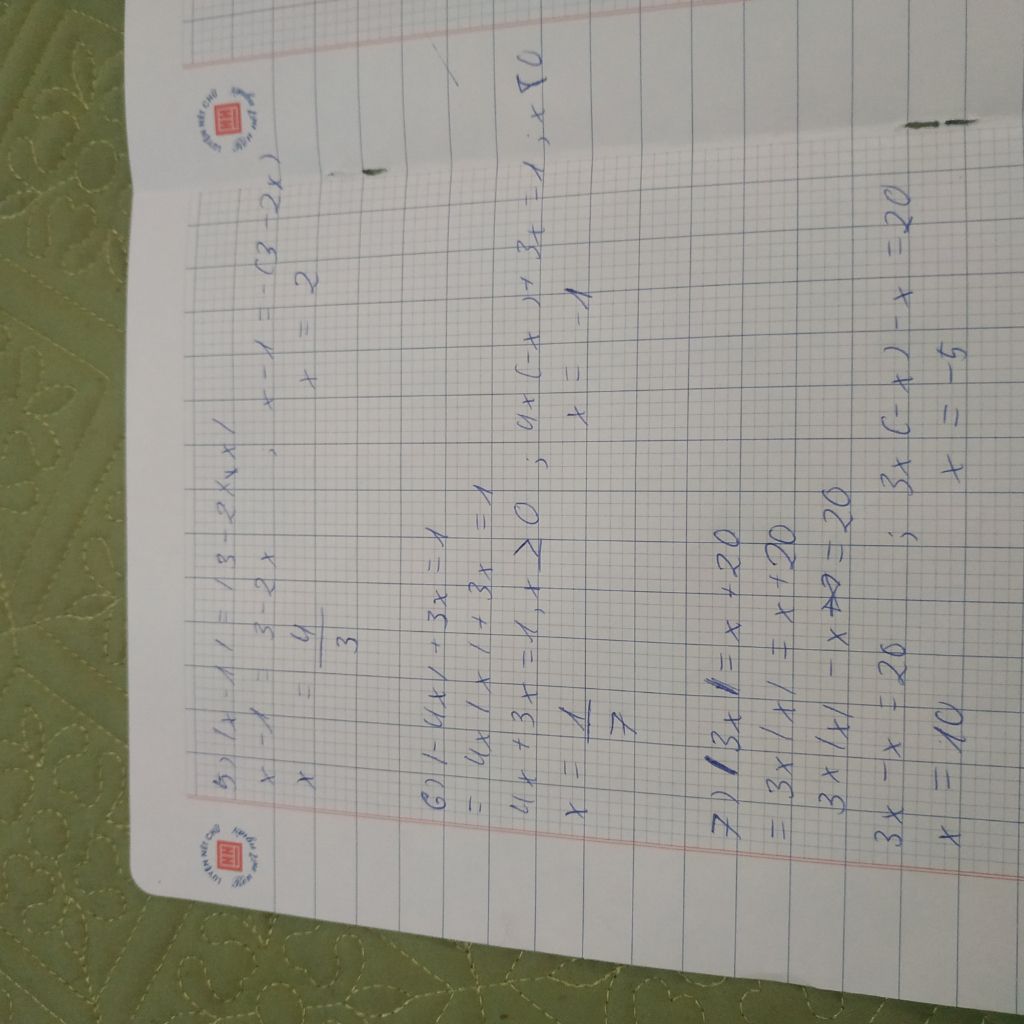 5) |x-1| = |3-2x|
x-1 = 3-2x , x-1 = -(3-2x)
x = 4/3 x = 2
6) |-4x|+3x=1
= 4x|x|+3x=1
4x+3x=1, x≥0 ; 4x(-x)+3x=1 ; x<0
x = 1/7 x = -1
7) |3x|=x+20
= 3x|x|=x+20
3x|x|-x=20
3x-x=20 ; 3x(-x)-x=20
x=10 x=-5
LUYỆN NÉT CHỮ
NN
LUYỆN NÉT CHỮ
NN